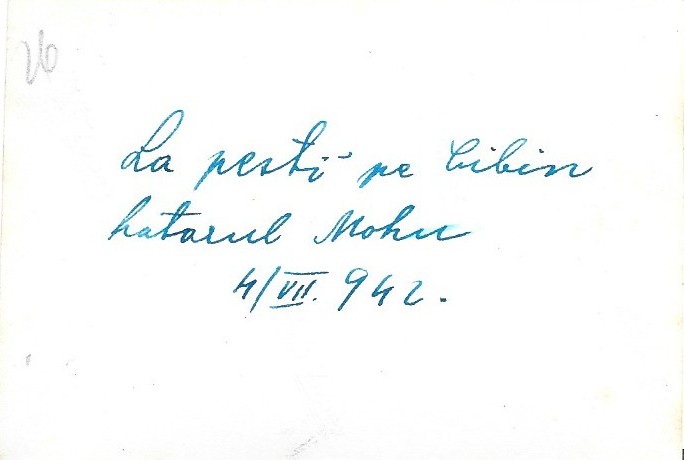 26
La pesti pe Cibin
hatarul Mohu
4/VII. 942.